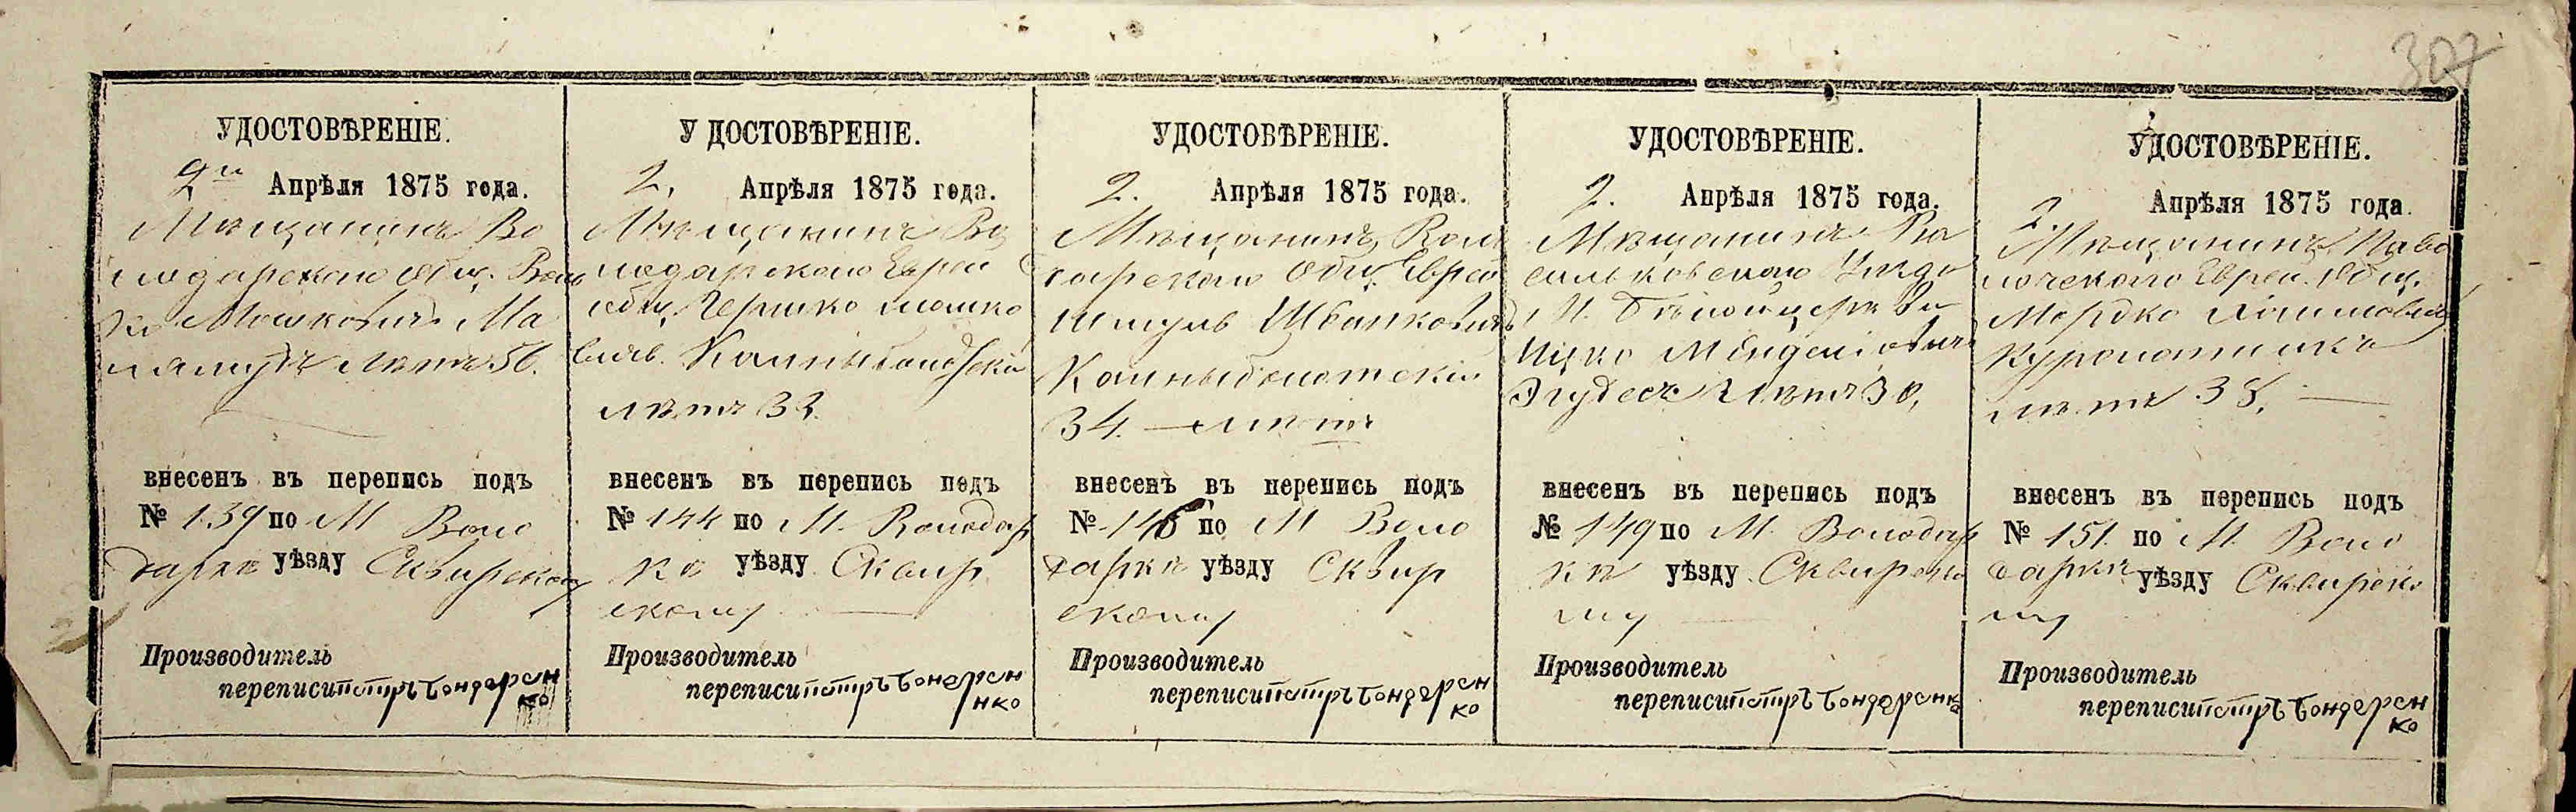 307
УДОСТОВѢРЕНІЕ.
2го Апрѣля 1875 года.
Мѣщанинъ Во
лодарскаго Общ. Вол
ко Мошковичъ Ма
лѣтъ 56.
внесенъ въ перепись подъ
№ 139 по М Воло
даркѣ уѣзду Сквирском
Производитель
переписи Петръ Бондарен
ко
УДОСТОВѢРЕНІЕ.
2. Апрѣля 1875 года.
Мѣщанинъ Во
лодарскаго Еврей
общ. Гершко Мошко
вичъ
лѣтъ 33.
внесенъ въ перепись подъ
№ 144 по М. Володар
кѣ уѣзду Сквир
скому
Производитель
переписи Петръ Бондарен
нко
УДОСТОВѢРЕНІЕ.
2. Апрѣля 1875 года.
Мѣщанинъ Воло
дарскаго Общ. Еврей
Шмуль
34. лѣтъ
внесенъ въ перепись подъ
№ 146 по М Воло
даркѣ уѣзду Сквир
скому
Производитель
переписи Петръ Бондарен
ко
УДОСТОВѢРЕНІЕ.
2. Апрѣля 1875 года.
Мѣщанинъ Ва
сильковскаго Уѣзда
М.
Ицко Менделіовичъ
лѣтъ 30,
внесенъ въ перепись подъ
№ 149 по М. Володар
кѣ уѣзду Сквирско
му
Производитель
переписи Петръ Бондаренко
УДОСТОВѢРЕНІЕ.
2. Апрѣля 1875 года.
Мѣщанинъ Паво
лочскаго Евреи. Общ.
Мордко
лѣтъ 38.
внесенъ въ перепись подъ
№ 151. по М. Воло
даркѣ уѣзду Сквирско
му
Производитель
переписи Петръ Бондарен
ко